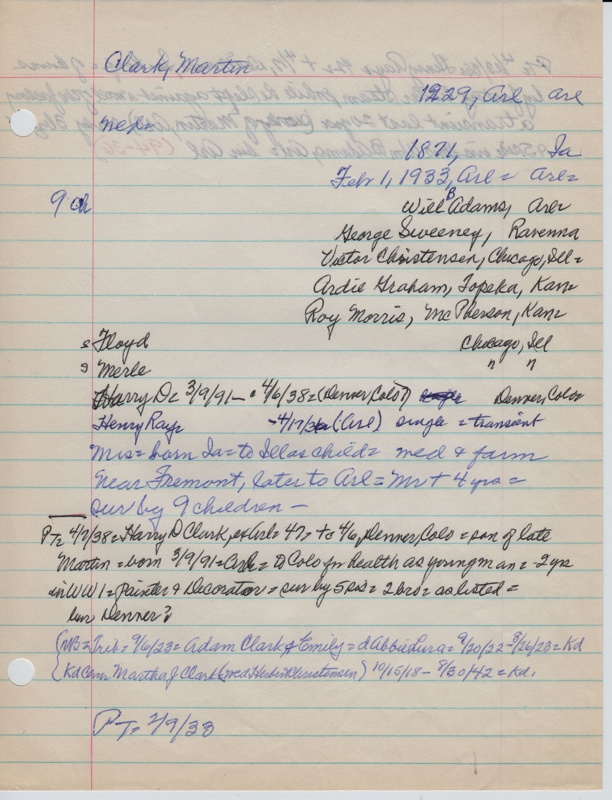 Clark, Martin
1229, Arl Arl
nep=
1871, Ia
Feb 1, 1933, Arl = Arl=
9 ch
Will B Adams, Arl=
George Sweeney, Ravenna
Victor Christensen, Chicago, Ill=
Ardie Graham, Topeka, Kan=
Roy Morris, McPherson, Kan=
s Floyd Chicago, Ill
s Merle " "
Harry D= 3/9/91- 4/6/38=(Denver, Colo?) Denver, Colo
Henry Ray= -4/17/36 (Arl) single = transient
Mrs= born Ia= to Ill as child= med & farm
near Fremont, later to Arl= Mr + 4 yrs =
sur by 9 children -
PT= 4/7/38= Harry D Clark, ex Arl= 47= to 4/6, Denver, Colo = son of late
Martin = born 3/9/91= Arl= to Colo for health as young man = 2 yrs
in WW1= Painter & Decorator = sur by 5 sis= 2 bro= as listed =
bur Denver?
{NB= Trib= 9/6/23= Adam Clark & Emily= d Abbie Lura= 9/20/22-8/26/23= Kd
Kd Cem Martha J Clark (med Herbert Christensen) 10/15/18- 8/30/42= Kd.
PT= 2/9/33